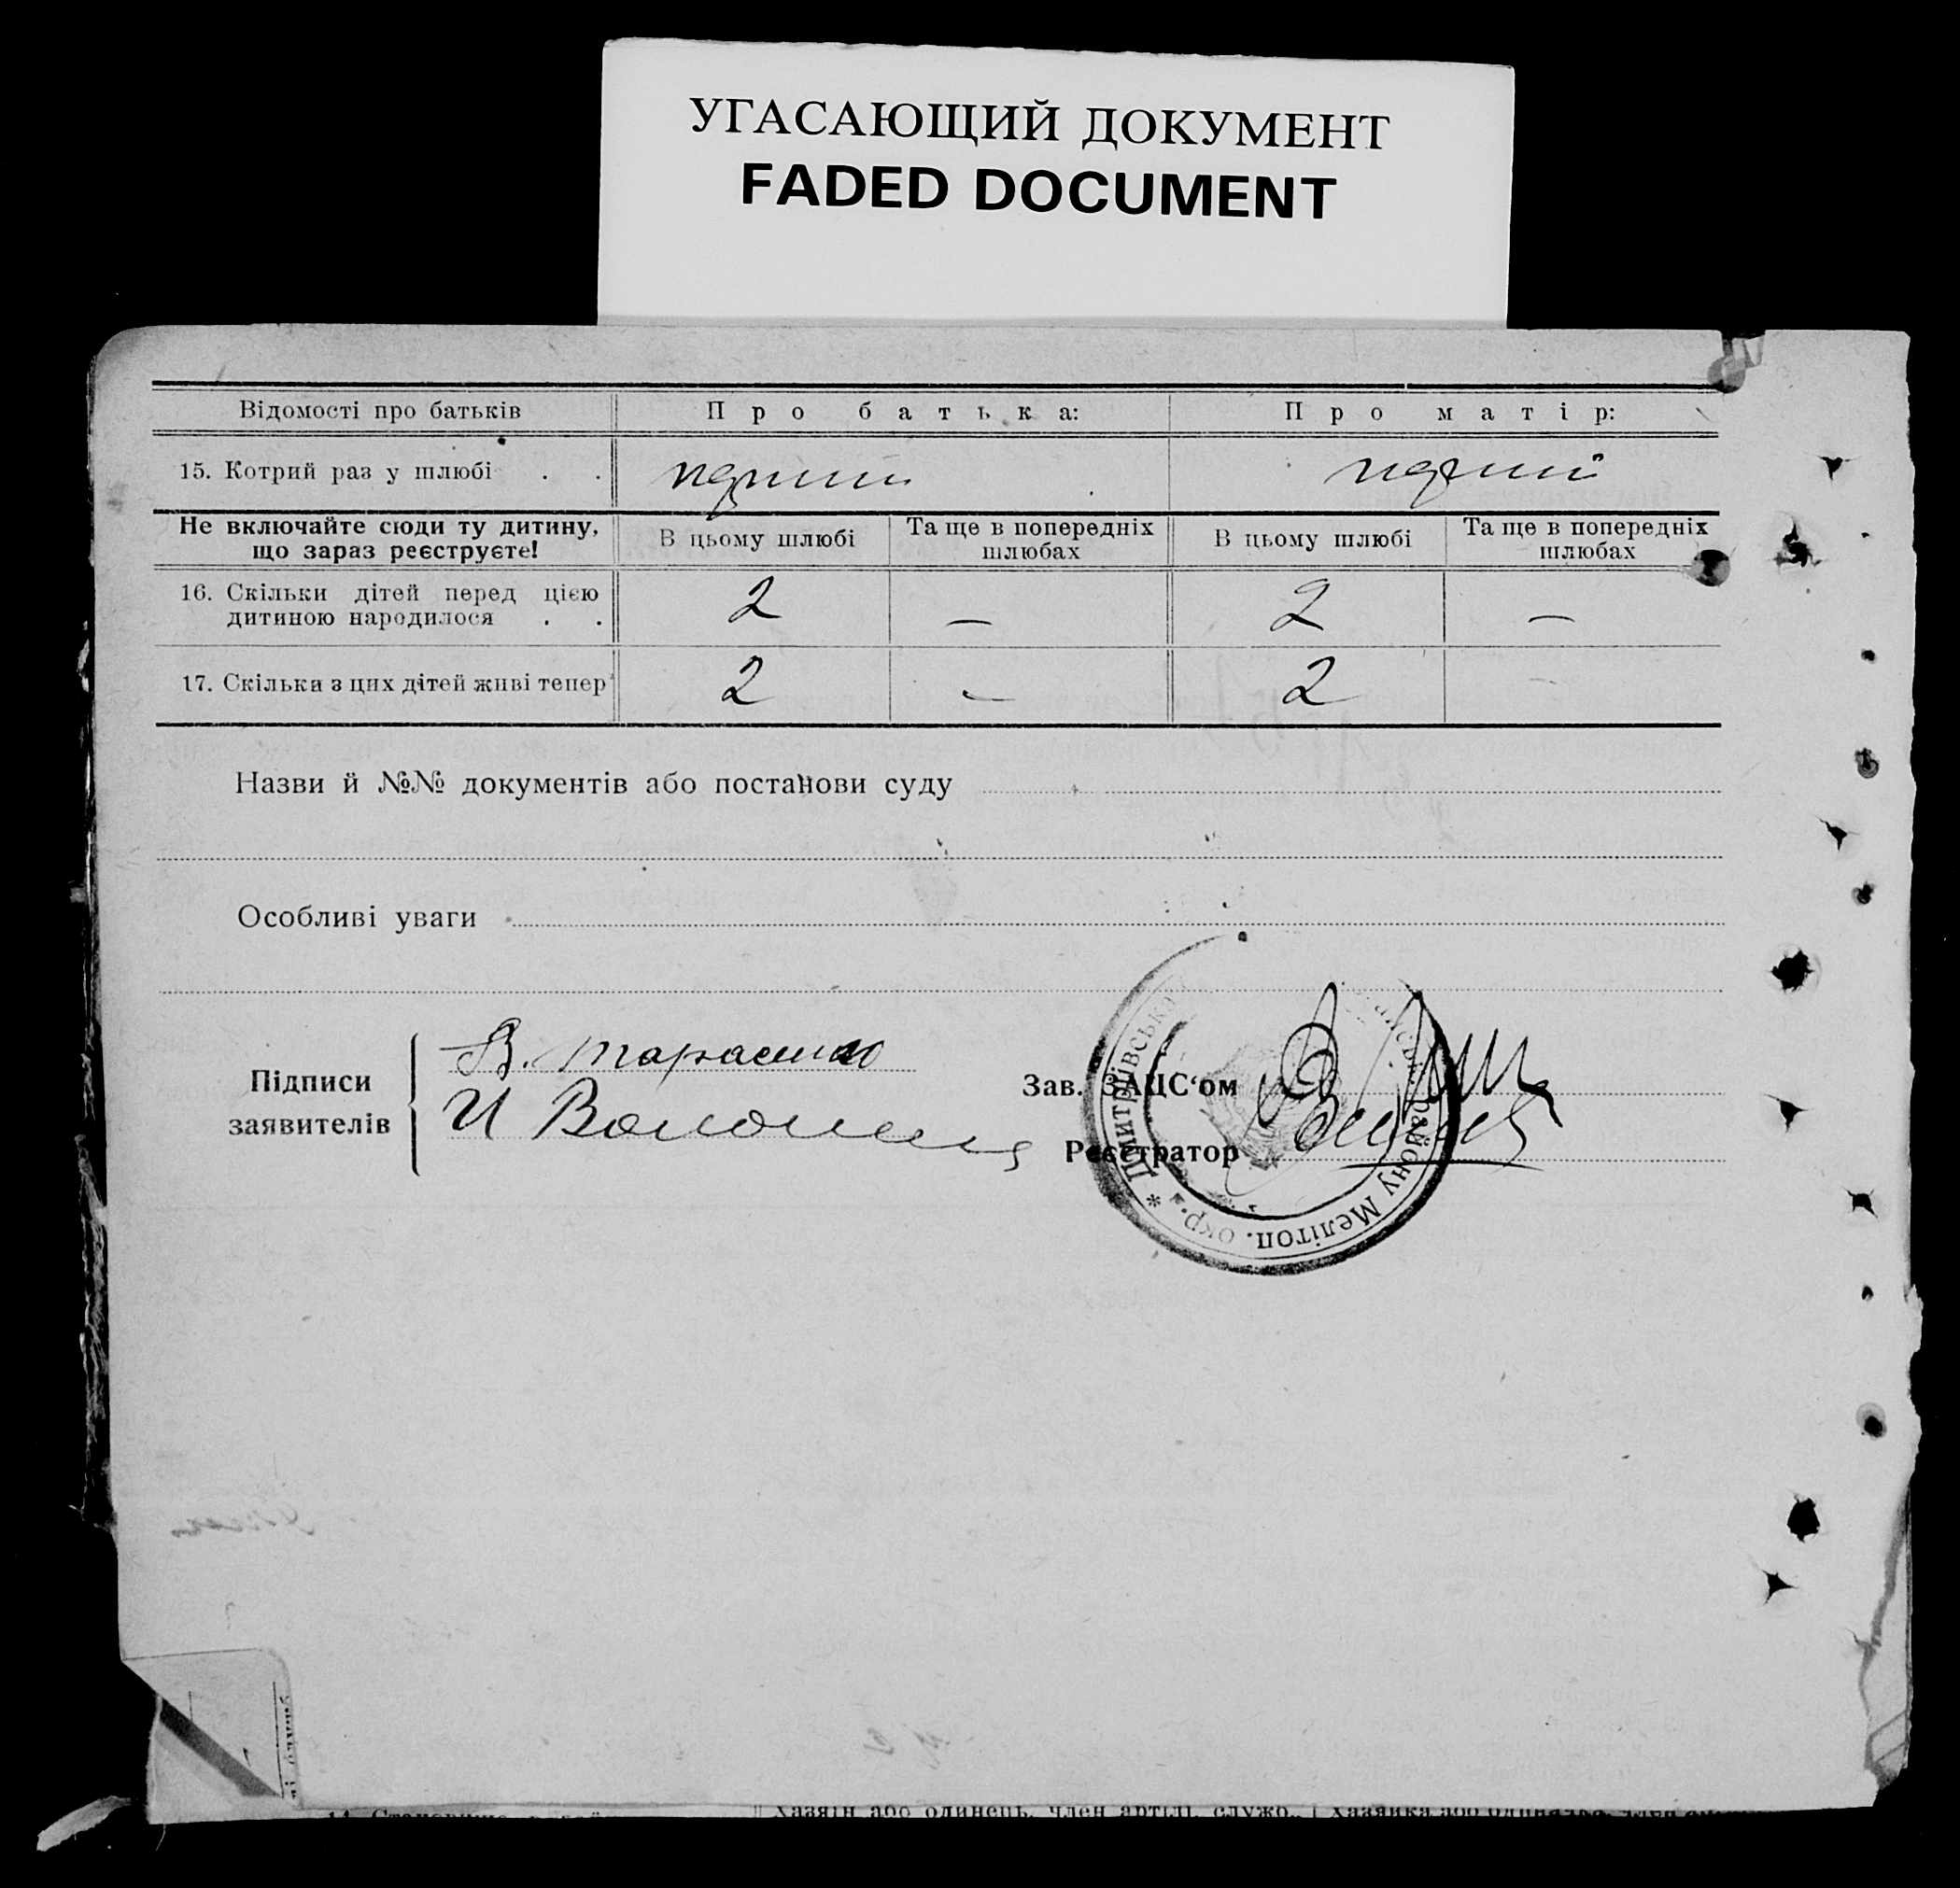 УГАСАЮЩИЙ ДОКУМЕНТ
FADED DOCUMENT
Відомості про батьків Про батька: Про матір:
15. Котрий раз у шлюбі . .
Не включайте сюди ту дитину, що зараз реєструєте! В цьому шлюбі Та ще в попередніх шлюбах В цьому шлюбі Та ще в попередніх шлюбах
16. Скільки дітей перед цією
дитиною народилося . . 2 — 2 —
17. Скілька з цих дітей живі тепер 2 — 2
Назви й №№ документів або постанови суду
Особливі уваги
Підписи
заявителів
В. Тарасенко
И
Зав. ЗАЦС‘ом
Реєстратор
* Дмитрівської району Мелітоп. окр.